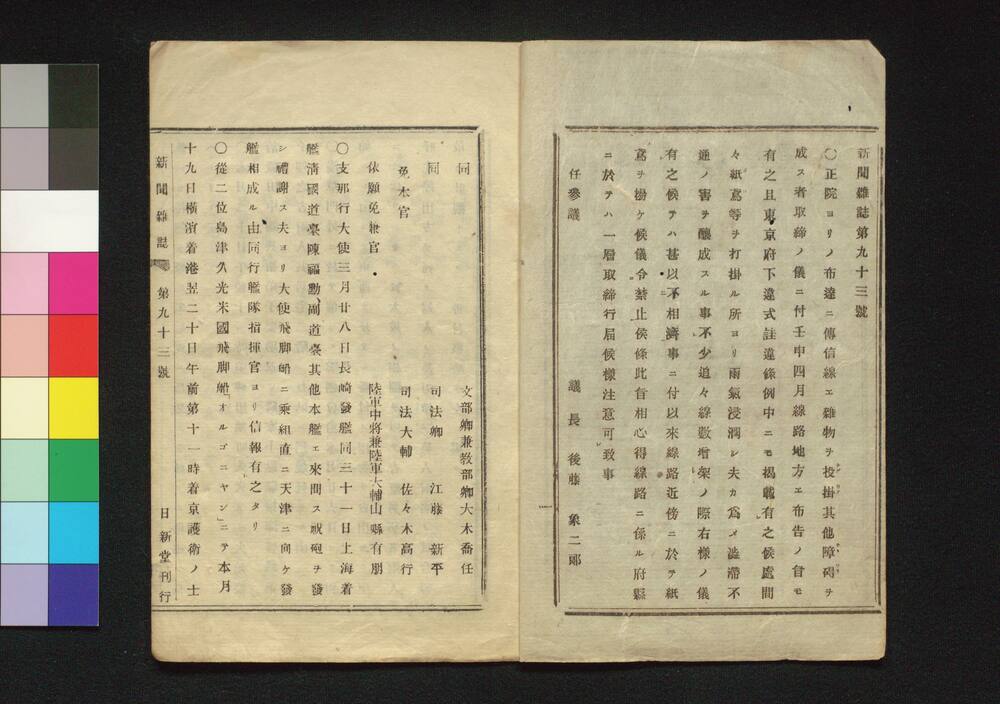 新聞雜誌第九十三號
〇正院ヨリノ布達ニ傳信線エ雜物ヲ投掛其他障碍ヲ
成ス者取締ノ儀ニ付壬申四月線路地方エ布告ノ旨モ
有之且東京府下違式詿違條例中ニモ揭載有之候處間
々紙鳶等ヲ打掛ル所ヨリ雨氣浸潤シ夫カ爲メ澁滯不
通ノ害ヲ釀成スル事不少追々線數增架ノ際右樣ノ儀
有之候テハ甚以不相濟事ニ付以來線路近傍ニ於テ紙
鳶ヲ揚ケ候儀令禁止侯條此旨相心得線路ニ係ル府縣
ニ於テハ一層取締行屆候樣注意可致事
任參議 議長 後藤 象二郞
同 文部卿兼敎部卿大木喬任
同 司法卿 江藤 新平
免本官 司法大輔 佐々木高行
依願免兼官 陸軍中將兼陸軍大輔山縣有朋
〇支那行大使三月廿八日長崎發艦同三十一日上海着
艦淸國道臺陳福勳、副道臺其他本艦エ來問ス或砲ヲ發
シ禮謝ス夫ヨリ大使飛脚船ニ乘組直ニ天津ニ向ケ發
艦相成ル由同行艦隊指揮官ヨリ信報有之タリ
〇從二位島津久光米國飛脚船「オルゴニヤン」ニテ本月
十九日橫濱着港翌二十日午前第十一時着京護衛ノ士
新聞雜誌 第九十三號 日新堂刊行